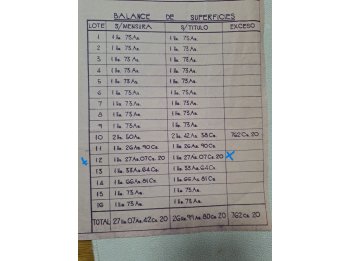 BALANCE DE SUPERFICIES
LOTE S/MENSURA S/TITULO EXCESO
1 1 Ha. 75 As. 1 Ha. 75 As.
2 1 Ha. 75 As. 1 Ha. 75 As.
3 1 Ha. 75 As. 1 Ha. 75 As.
4 1 Ha. 75 As. 1 Ha. 75 As.
5 1 Ha. 75 As. 1 Ha. 75 As.
6 1 Ha. 75 As. 1 Ha. 75 As.
7 1 Ha. 75 As. 1 Ha. 75 As.
8 1 Ha. 75 As. 1 Ha. 75 As.
9 1 Ha. 75 As. 1 Ha. 75 As.
10 2 Ha. 50 As. 2 Ha. 42 As. 38 Cs. 762 Cs. 20
11 1 Ha. 26 As. 90 Cs. 1 Ha. 26 As. 90 Cs.
12 1 Ha. 27 As. 07 Cs. 20 1 Ha. 27 As. 07 Cs. 20
13 1 Ha. 38 As. 64 Cs. 1 Ha. 38 As. 64 Cs.
14 1 Ha. 66 As. 81 Cs. 1 Ha. 66 As. 81 Cs.
15 1 Ha. 75 As. 1 Ha. 75 As.
16 1 Ha. 75 As. 1 Ha. 75 As.
TOTAL 27 Ha. 07 As. 42 Cs. 20 26 Ha. 99 As. 80 Cs. 20 762 Cs. 20